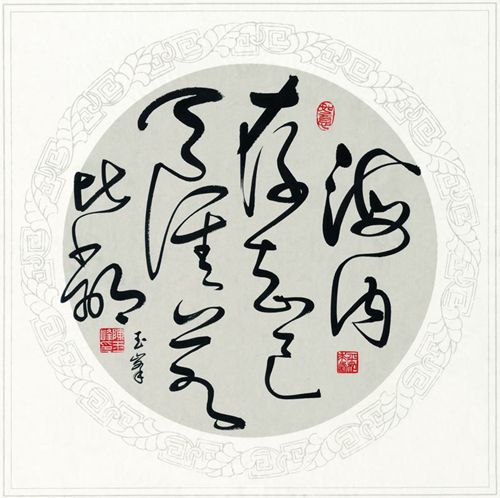 海内
存知己
天涯若
比鄰
玉峯